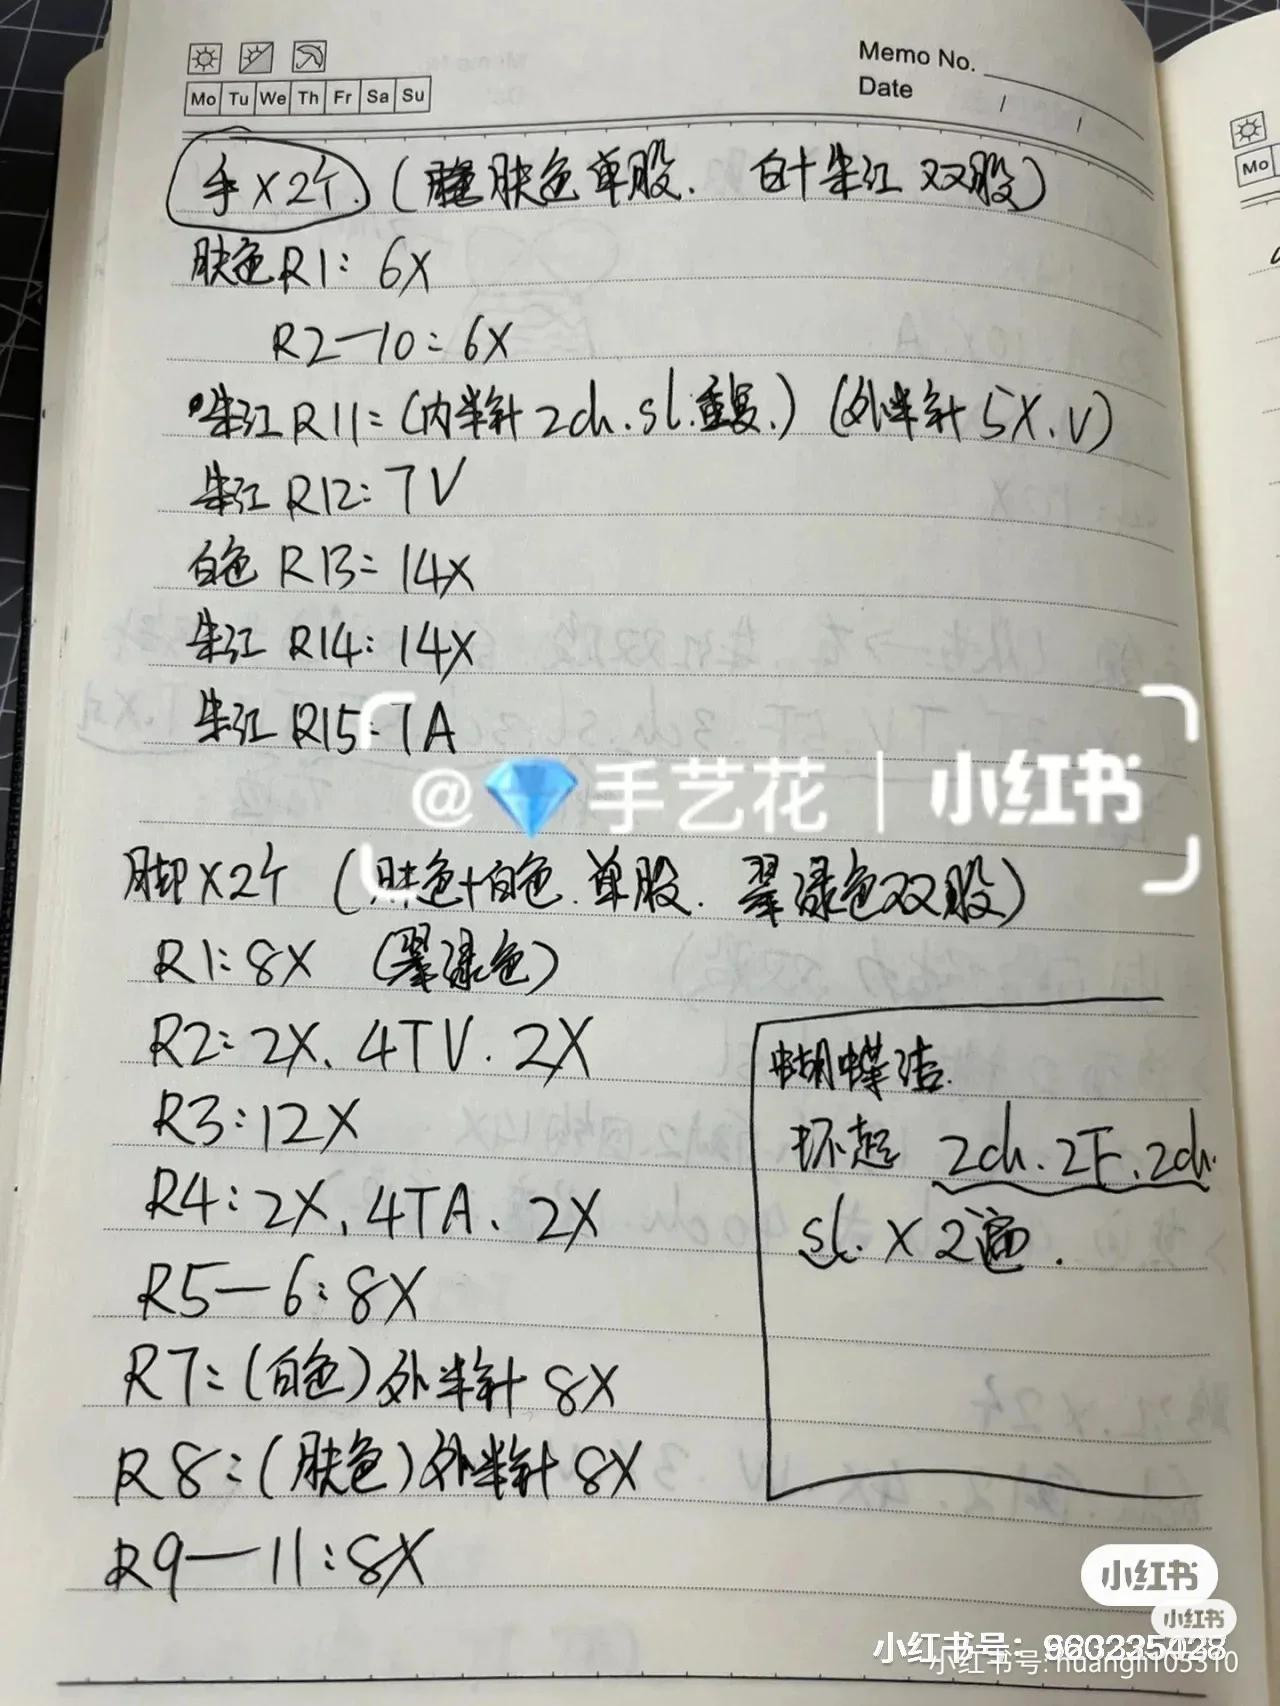 Memo No.
Mo Tu We Th Fr Sa Su
Date / /
Mo
手×2个.(肤色单股. 白+朱红 双股)
肤色R1: 6X
R2—10: 6X
朱红R11=(内半针 2ch.sl.重复.)(外半针 5X.V)
朱红 R12: 7V
白色 R13= 14X
朱红 R14: 14X
朱红 R15: 7A
@💎手艺花 | 小红书
脚×2个 (肤色+白色.单股. 翠绿色双股)
R1: 8X (翠绿色)
R2: 2X. 4TV. 2X
R3: 12X
R4: 2X. 4TA. 2X
R5—6: 8X
R7:(白色)外半针 8X
R8:(肤色)外半针 8X
R9—11: 8X
蝴蝶结.
环起 2ch. 2F. 2ch.
sl. × 2遍.
小红书
小红书
小红书号: 960235028
小红书号: huangli105310